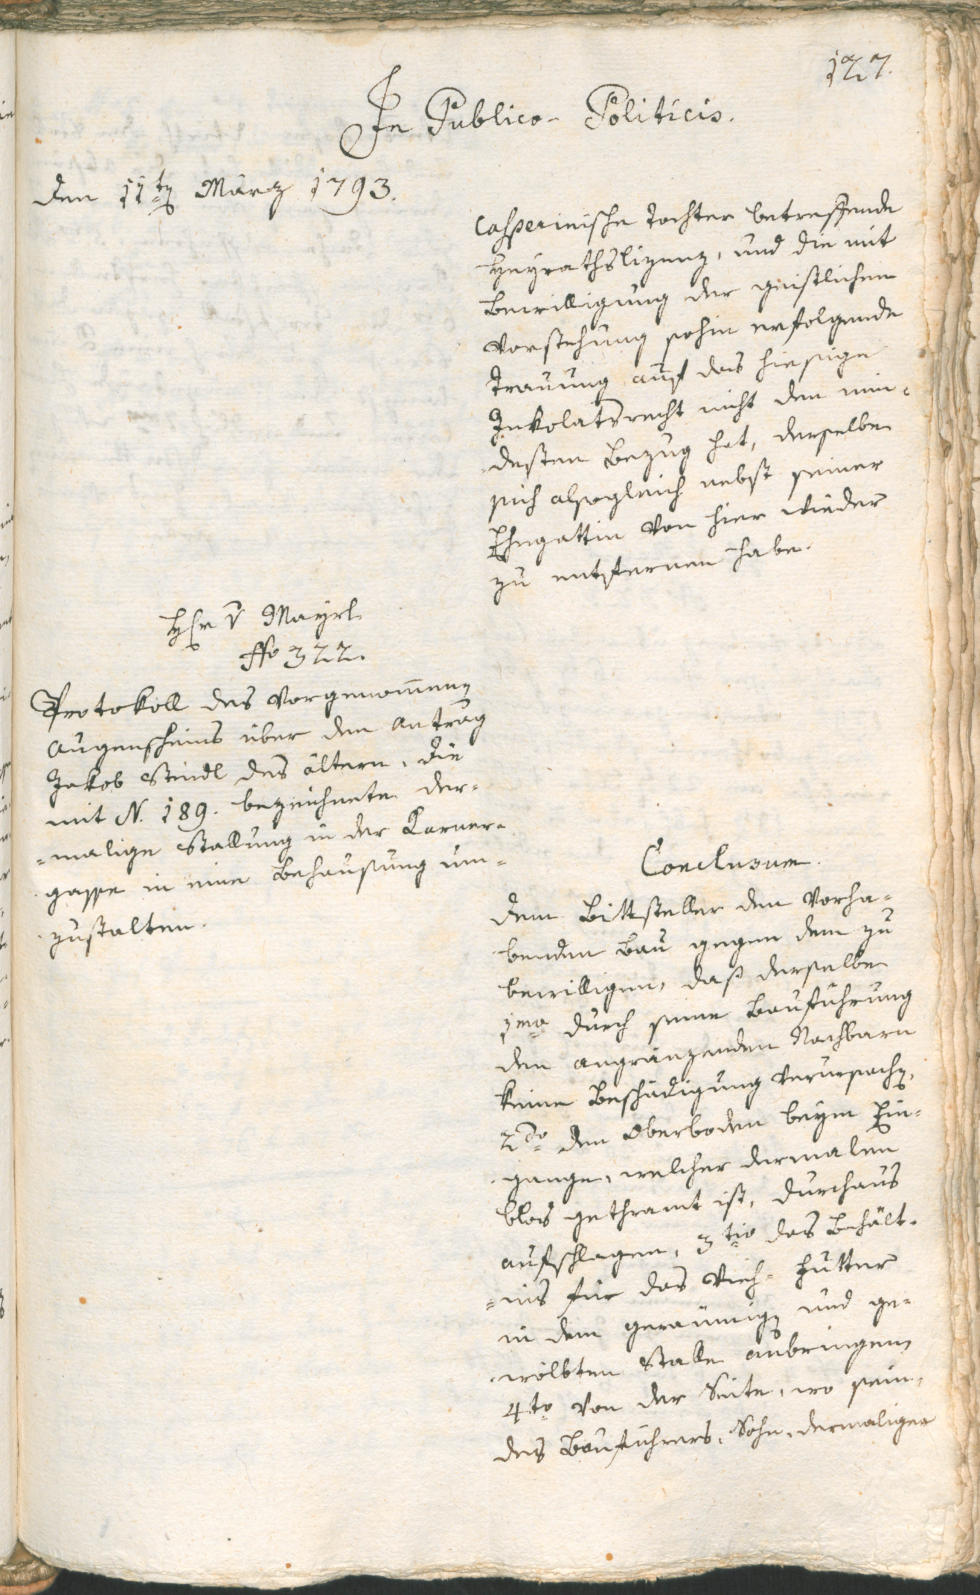 127.
In Publico-Politicis.
den 11ten März 1793.
Casperinische Tochter betreffende
Heyrathslizenz, und die mit
Bewilligung der geistlichen
Vorstehung sohin erfolgende
Trauung auf das hiesige
Inkolatsrecht nicht den min-
desten Bezug hat, derselbe
sich alsogleich nebst seiner
Ehegattin von hier wieder
zu entfernen habe.
Hr v Mayrl
fo 322.
Protokoll des vorgenommenen
Augenscheins über den Antrag
Jakob Steidl des ältern, die
mit N. 189. bezeichnete der-
=malige Stallung in der Karner-
gasse in eine Behausung um-
zustalten.
Conclusum.
dem Bittsteller den vorha-
benden Bau gegen dem zu
bewilligen, daß derselbe
1mo durch seine Bauführung
den angränzenden Nachbarn
keine Beschädigung verursache,
2do den Oberboden beym Ein-
gange, welcher dermalen
blos gethramt ist, durchaus
aufschlagen, 3tio das Behält-
=nis für das Vieh-Futter
in dem geräumigen und ge-
wölbten Stalle anbringen,
4to von der Seite, wo sein,
des Bauführers, Sohn, dermaliger